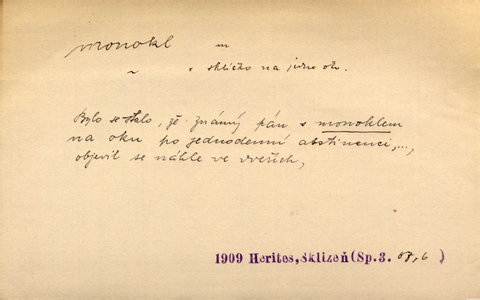 monokl m
~ sklíčko na jedno oko.
Bylo se stalo, že známý pán s monoklem
na oku po jednodenní abstinenci,...,
objevil se náhle ve dveřích,
1909 Herites, Sklizeň (Sp.3. )